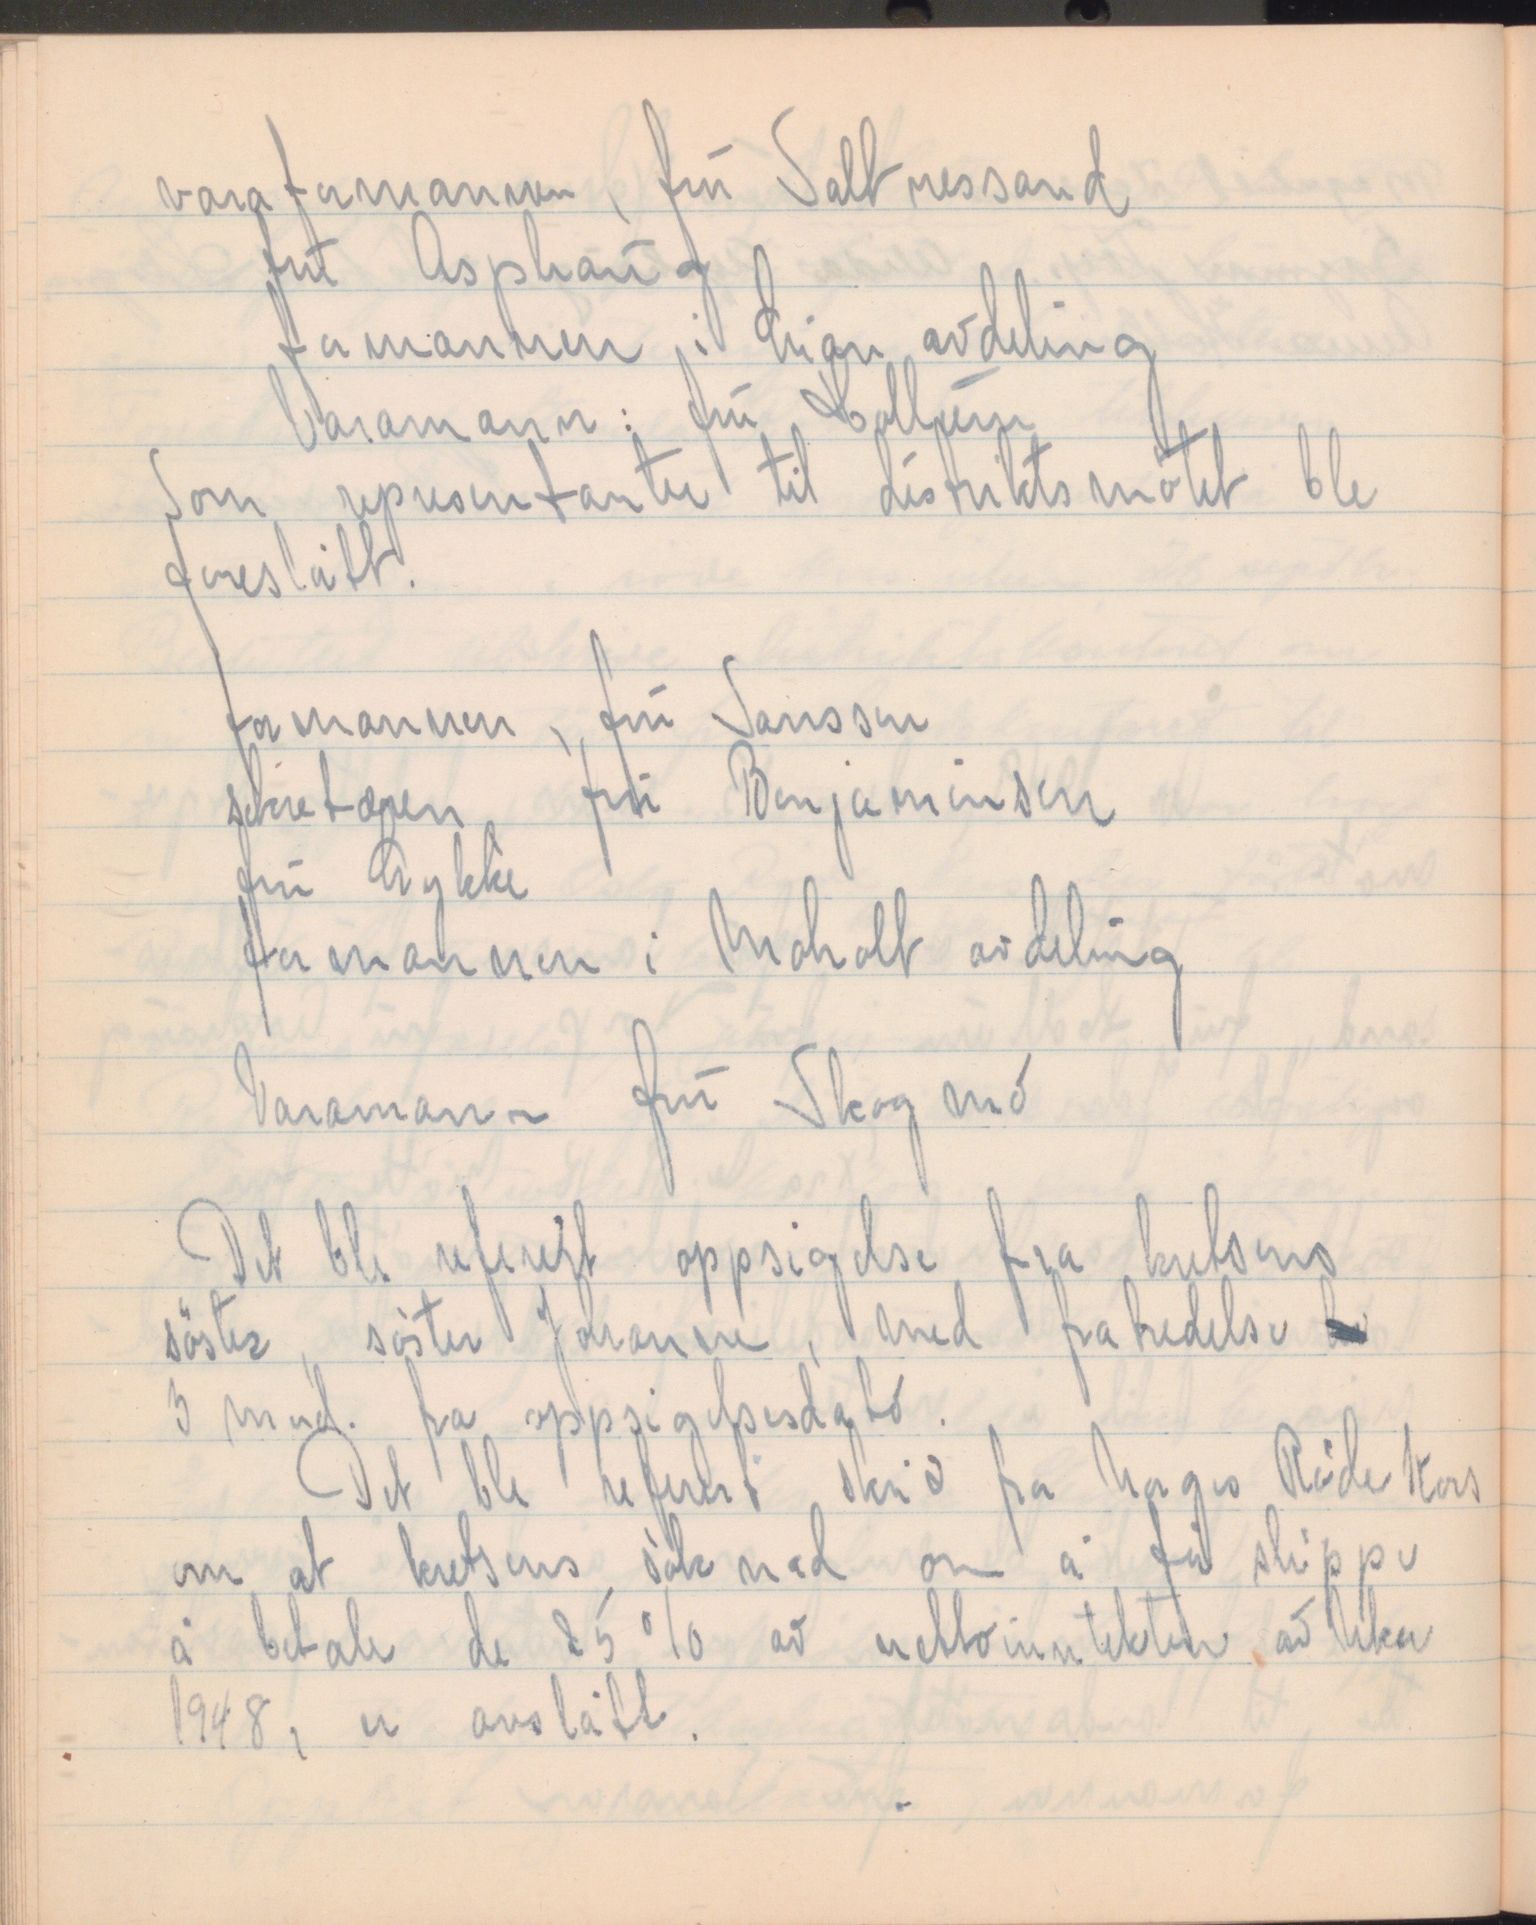 varaformannen, frú Saltnessand
frú Asphaug
formannen i Lian avdeling
Varamann: frú Kollúm
Som representanter til distriktsmötet ble
foreslått.
formannen, frú Jansson
sekretæren, frú Benjaminsen
frú Rykke
formannen i Moholt avdeling
Varamann frú Skogmó
Det ble referert oppsigelse fra kretsens
söster, söster Johanne, med fratredelse
3 mnd. fra oppsigelsesdato.
Det ble referert skriv fra Norges Röde Kors
om at kretsens söknad om å få slippe
å betale de 25% av nettoinntekten av uken
1948, er avslått.